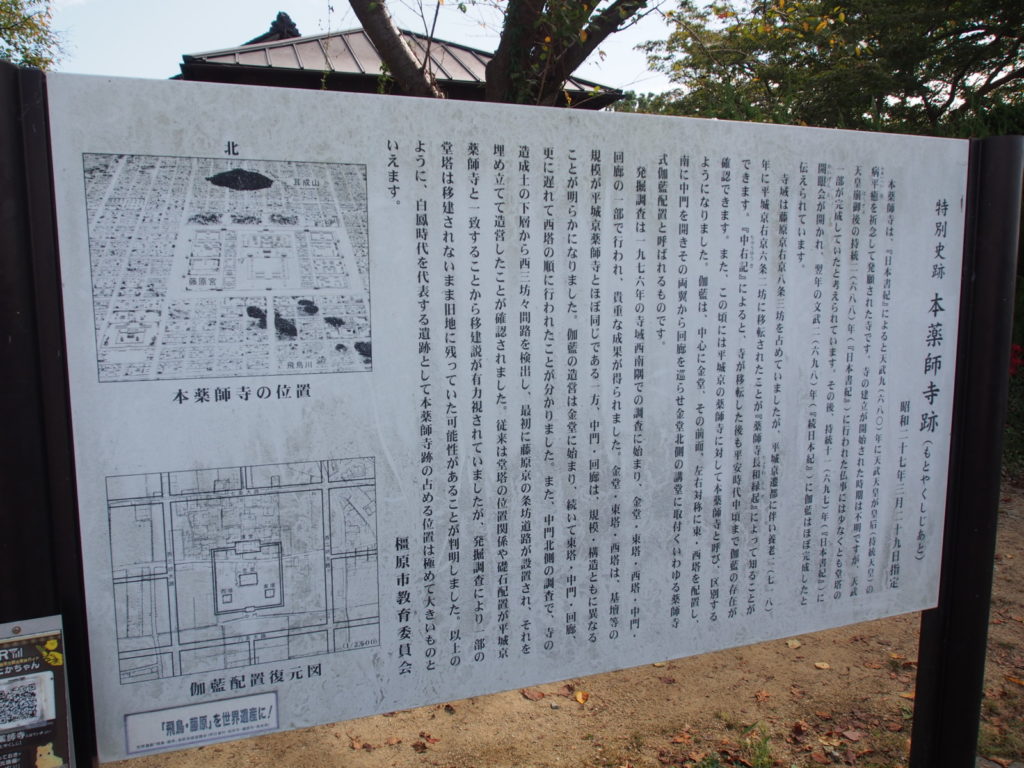 特別史跡 本薬師寺跡（もとやくしじあと）
昭和二十七年三月二十九日指定
本薬師寺は、『日本書紀』によると天武九（六八〇）年に天武天皇が皇后（持統天皇）の
病平癒を祈念して発願された寺です。寺の建立が開始された時期は不明ですが、天武
天皇崩御後の持統二（六八八）年（『日本書紀』）に行われた仏事には少なくとも堂塔の
一部が完成していたと考えられています。その後、持統十一（六九七）年（『日本書紀』）に
開眼会が開かれ、翌年の文武二（六九八）年（『続日本紀』）に伽藍はほぼ完成したと
伝えられています。
寺域は藤原京右京八条三坊を占めていましたが、平城京遷都に伴い養老二（七一八）
年に平城京右京六条二坊に移転されたことが『薬師寺長和縁起』によって知ることが
できます。『中右記』によると、寺が移転した後も平安時代中頃まで伽藍の存在が
確認できます。また、この頃には平城京の薬師寺に対して本薬師寺と呼び、区別する
ようになりました。伽藍は、中心に金堂、その前面、左右対称に東・西塔を配置し、
南に中門を開きその両翼から回廊を巡らせ金堂北側の講堂に取付くいわゆる薬師寺
式伽藍配置と呼ばれるものです。
発掘調査は一九七六年の寺域西南隅での調査に始まり、金堂・東塔・西塔・中門・
回廊の一部で行われ、貴重な成果が得られました。金堂・東塔・西塔は、基壇等の
規模が平城京薬師寺とほぼ同じである一方、中門・回廊は、規模・構造ともに異なる
ことが明らかになりました。伽藍の造営は金堂に始まり、続いて東塔・中門・回廊、
更に遅れて西塔の順に行われたことが分かりました。また、中門北側の調査で、寺の
造成土の下層から西三坊々間路を検出し、最初に藤原京の条坊道路が設置され、それを
埋め立てて造営したことが確認されました。従来は堂塔の位置関係や礎石配置が平城京
薬師寺と一致することから移建説が有力視されていましたが、発掘調査により一部の
堂塔は移建されないまま旧地に残っていた可能性があることが判明しました。以上の
ように、白鳳時代を代表する遺跡として本薬師寺跡の占める位置は極めて大きいものと
いえます。
橿原市教育委員会
北
耳成山
藤原宮
飛鳥川
本薬師寺の位置
(1/2500)
伽藍配置復元図
「飛鳥・藤原」を世界遺産に！